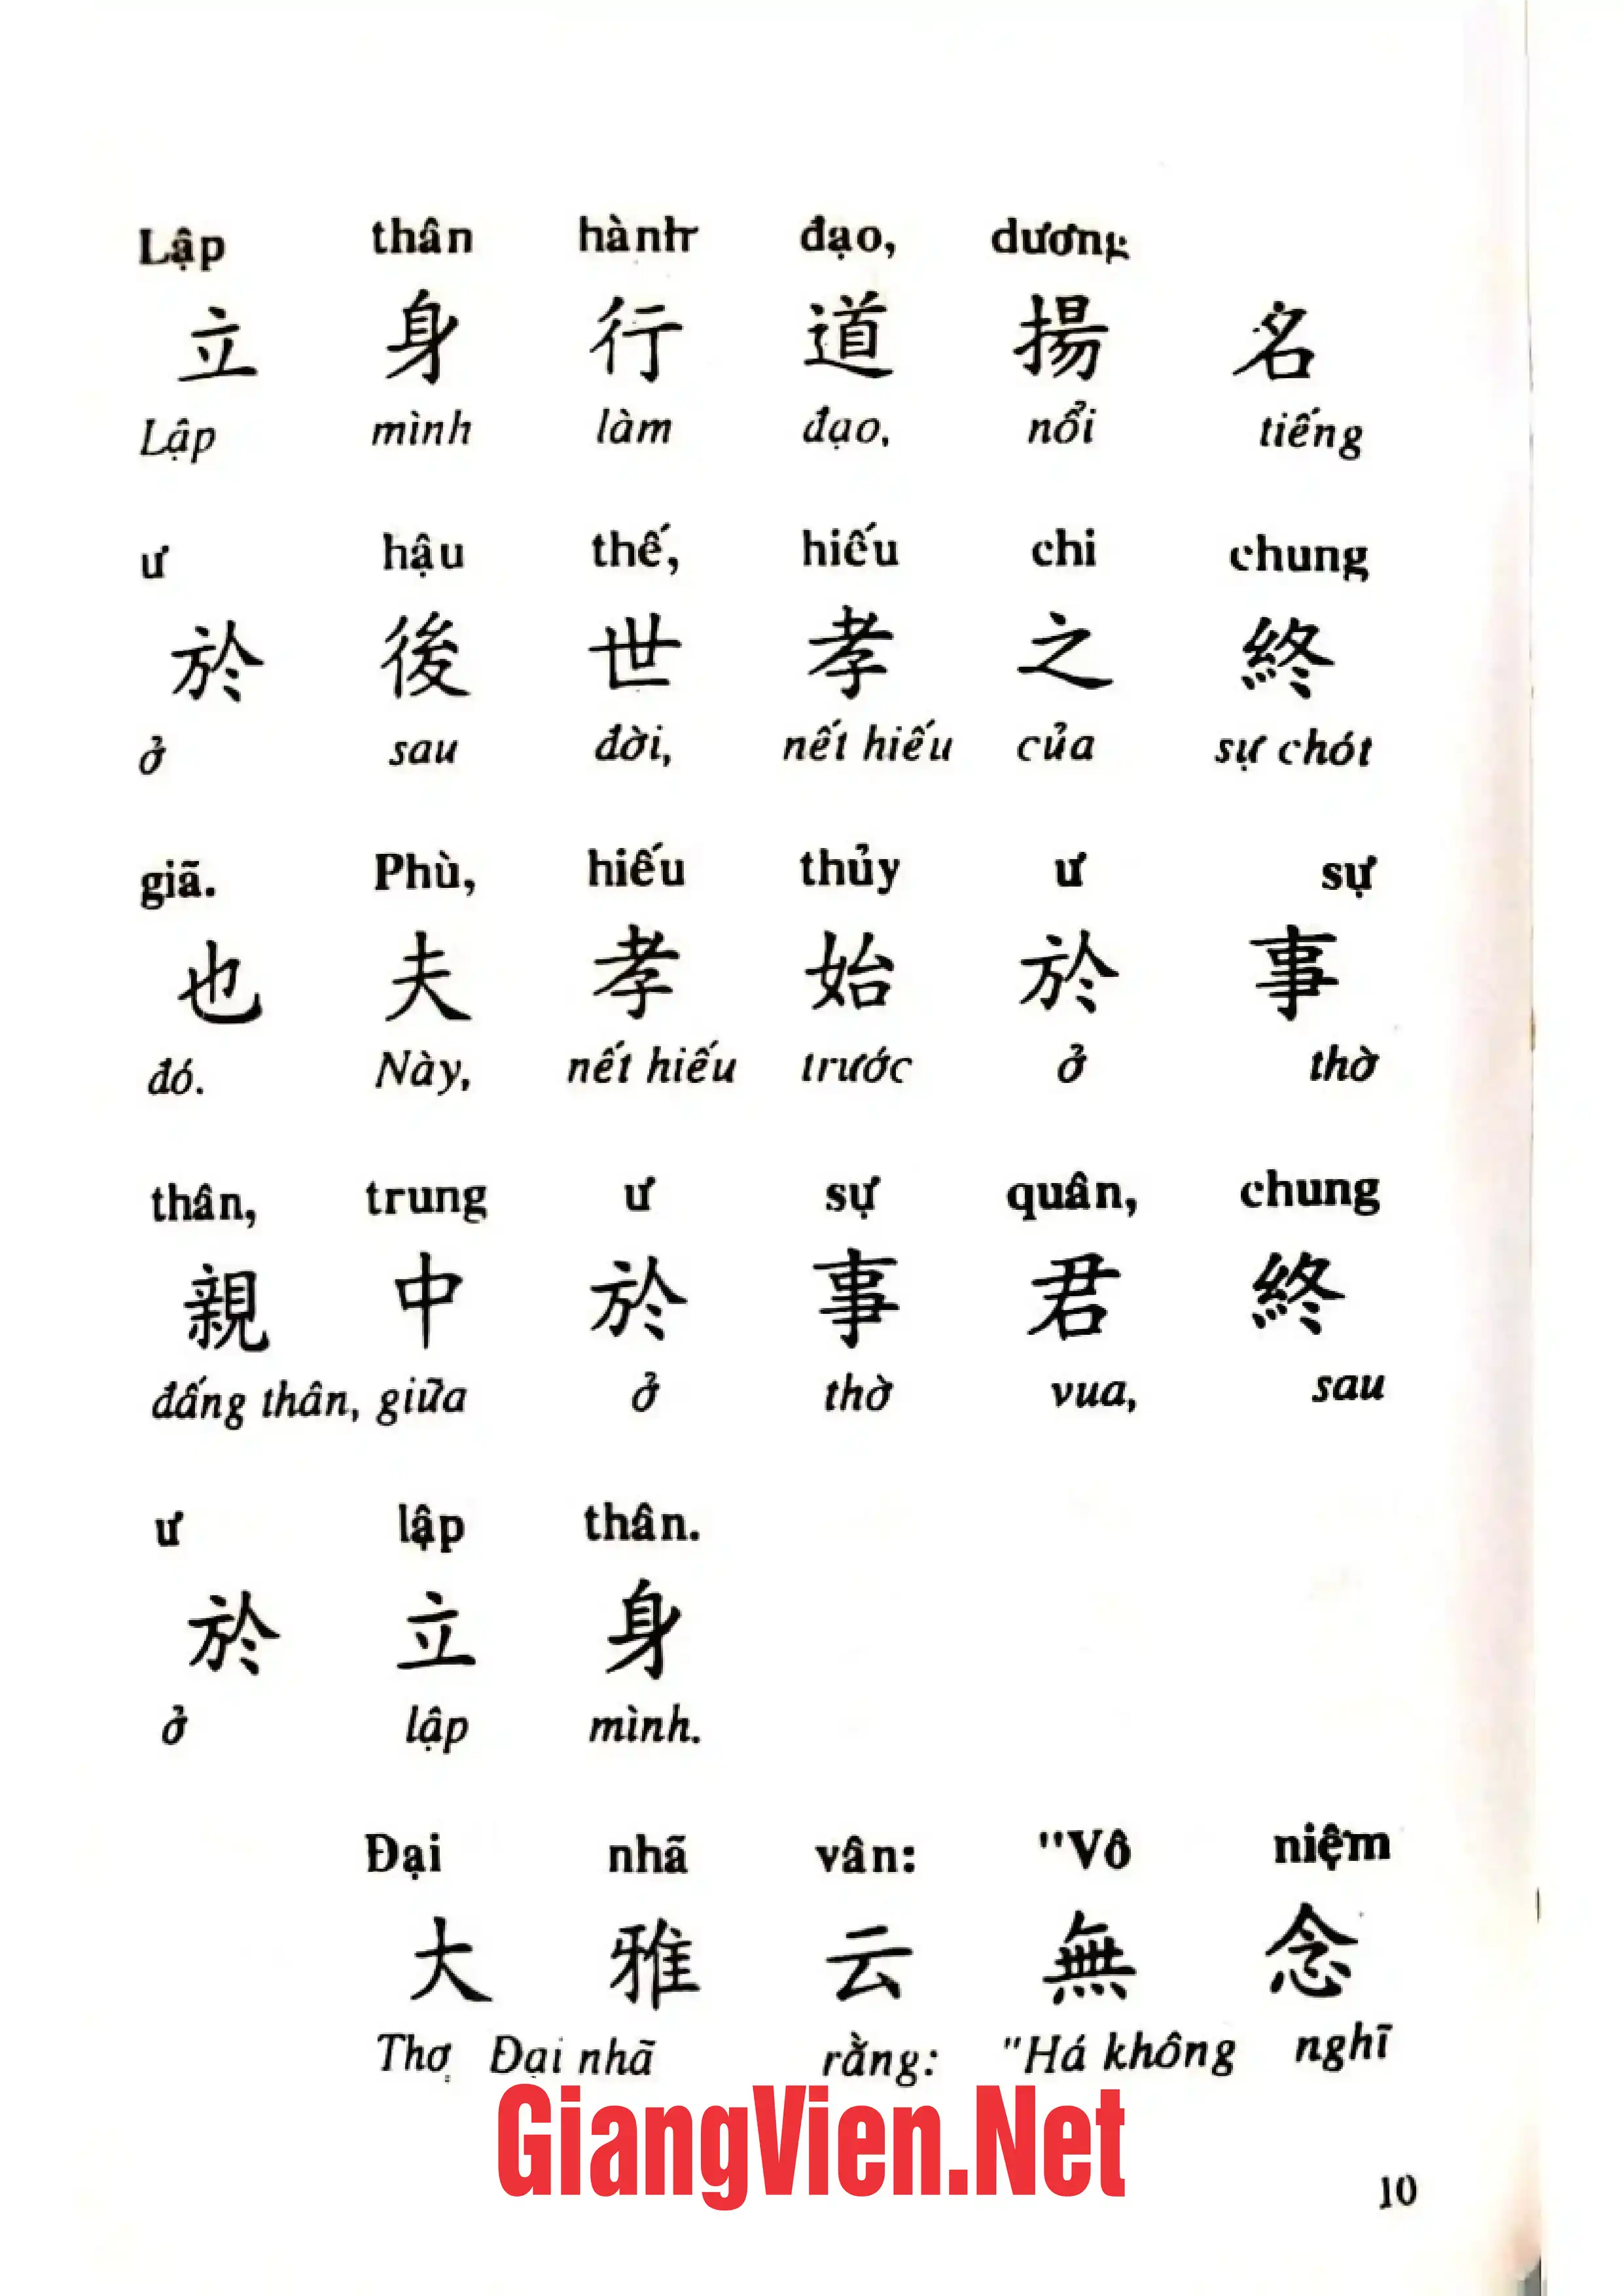 Lập thân hành đạo, dương
立 身 行 道 揚 名
Lập mình làm đạo, nổi tiếng
ư hậu thế, hiếu chi chung
於 後 世 孝 之 終
ở sau đời, nết hiếu của sự chót
giã. Phù, hiếu thủy ư sự
也 夫 孝 始 於 事
đó. Này, nết hiếu trước ở thờ
thân, trung ư sự quân, chung
親 中 於 事 君 終
đấng thân, giữa ở thờ vua, sau
ư lập thân.
於 立 身
ở lập mình.
Đại nhã vân: "Vô niệm
大 雅 云 無 念
Thơ Đại nhã rằng: "Há không nghĩ
GiangVien.Net
10